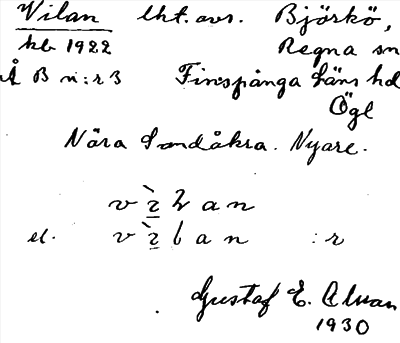 Vilan lht. avs. Björkö,
kb 1922 Regna sn
Å B n:r 3 Finspånga läns hd
Ögl
Nära Sandåkra. Nyare.
el. :r
Gustaf E. Alman
1930